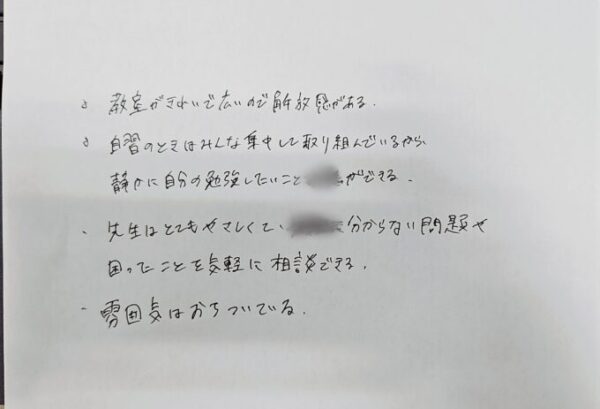 ・教室がきれいで広いので解放感がある.
・自習のときはみんな集中して取り組んでいるから
静かに自分の勉強したいことができる.
・先生はとてもやさしくて、分からない問題や
困ったことを気軽に相談できる.
・雰囲気はおちついている.